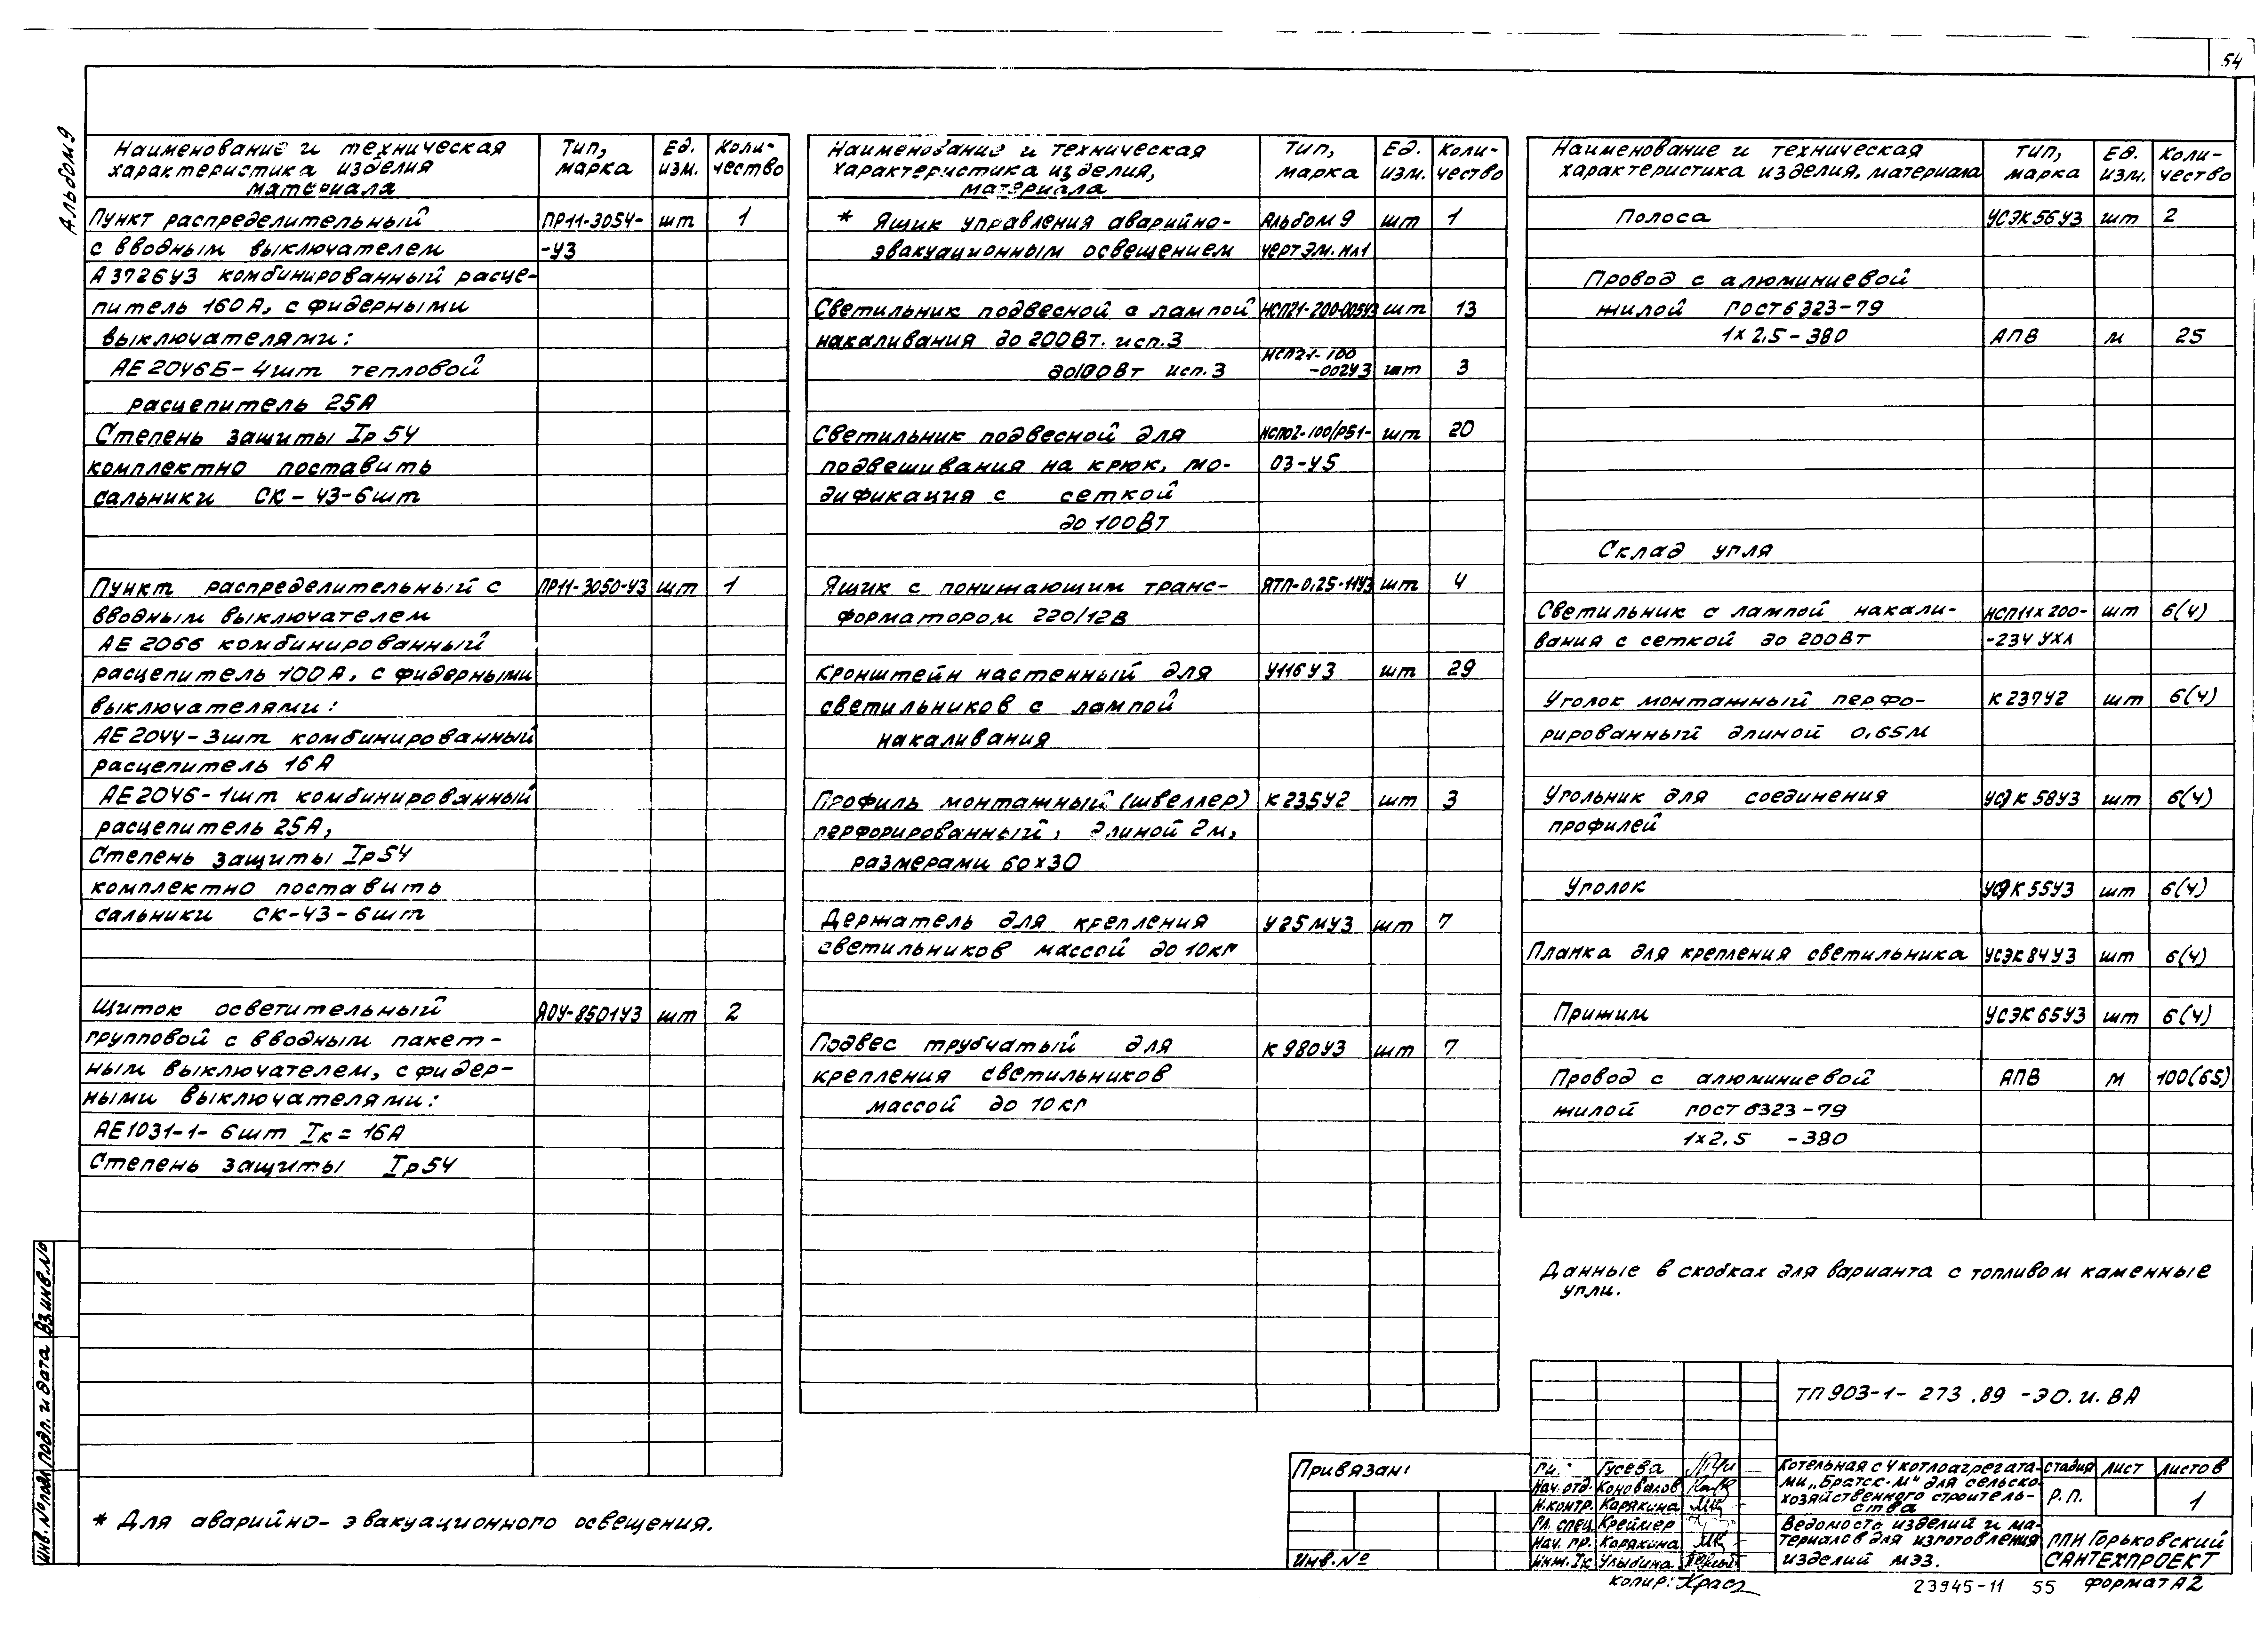 54
Альбом 9
Наименование и техническая характеристика изделия материала | Тип, марка | Ед. изм. | Коли-чество
Пункт распределительный | ПР11-3054- | шт | 1
с вводным выключателем | -У3
А3726У3 комбинированный расце-
питель 160А, с фидерными
выключателями:
АЕ2046Б-4шт тепловой
расцепитель 25А
Степень защиты Ip54
комплектно поставить
сальники СК-43-6шт
Пункт распределительный с | ПР11-3050-У3 | шт | 1
вводным выключателем
АЕ 2066 комбинированный
расцепитель 100А, с фидерными
выключателями:
АЕ2044-3шт комбинированный
расцепитель 16А
АЕ2046-1шт комбинированный
расцепитель 25А,
Степень защиты Ip54
комплектно поставить
сальники СК-43-6шт
Щиток осветительный | ЯОУ-8501У3 | шт | 2
групповой с вводным пакет-
ным выключателем, с фидер-
ными выключателями:
АЕ1031-1- 6шт Iк=16А
Степень защиты Ip54
* Для аварийно-эвакуационного освещения.
Наименование и техническая характеристика изделия, материала | Тип, марка | Ед. изм. | Коли-чество
* Ящик управления аварийно- | Альбом 9 | шт | 1
эвакуационным освещением | черт ЭМ. НЛ1
Светильник подвесной с лампой | НСП21-200-005У3 | шт | 13
накаливания до 200Вт. исп.3
до100Вт исп.3 | НСП21-100-002У3 | шт | 3
Светильник подвесной для | НСП02-100/Р51- | шт | 20
подвешивания на крюк, мо- | 03-У5
дификация с сеткой
до 100Вт
Ящик с понижающим транс- | ЯТП-0,25-11У3 | шт | 4
форматором 220/12В
Кронштейн настенный для | У116У3 | шт | 29
светильников с лампой
накаливания
Профиль монтажный (швеллер) | К235У2 | шт | 3
перфорированный, длиной 2м,
размерами 60х30
Держатель для крепления | У25МУ3 | шт | 7
светильников массой до 10кг
Подвес трубчатый для | К980У3 | шт | 7
крепления светильников
массой до 10кг
Наименование и техническая характеристика изделия, материала | Тип, марка | Ед. изм. | Коли-чество
Полоса | УСЭК56У3 | шт | 2
Провод с алюминиевой
жилой ГОСТ6323-79
1х2,5-380 | АПВ | м | 25
Склад угля
Светильник с лампой накали- | НСП11х200- | шт | 6(4)
вания с сеткой до 200Вт | -234 УХЛ
Уголок монтажный перфо- | К237У2 | шт | 6(4)
рированный длиной 0,65м
Угольник для соединения | УСЭК58У3 | шт | 6(4)
профилей
Уголок | УСЭК55У3 | шт | 6(4)
Планка для крепления светильника | УСЭК84У3 | шт | 6(4)
Прижим | УСЭК65У3 | шт | 6(4)
Провод с алюминиевой | АПВ | м | 100(65)
жилой ГОСТ 6323-79
1х2,5 -380
Данные в скобках для варианта с топливом каменные
угли.
ТП 903-1-273.89 -ЭО.И.ВА
Привязан:
Инв.№
Гусева
Нач.отд. Коновалов
Н.контр. Карякина
Гл. спец. Креймер
Нач. гр. Карякина
Инж.Iк Улыбина
Котельная с 4 котлоагрегата-
ми „Братск-М" для сельско-
хозяйственного строитель-
ства
Стадия | Лист | Листов
Р.П. | 1
Ведомость изделий и ма-
териалов для изготовления
изделий МЭЗ.
ГПИ Горьковский
САНТЕХПРОЕКТ
копир:
23945-11 55 Формат А2
Инв.№подл Подп. и дата Вз.инв.№